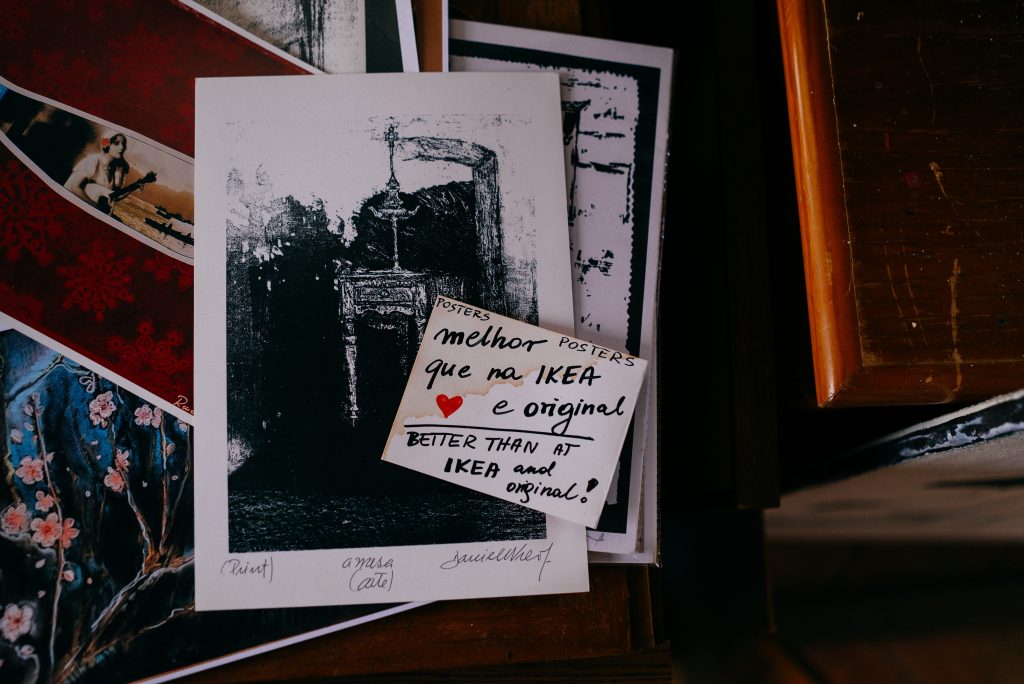 POSTERS
melhor POSTERS
que na IKEA
e original
BETTER THAN AT
IKEA and
original!
(Print)
a mesa
(arte)